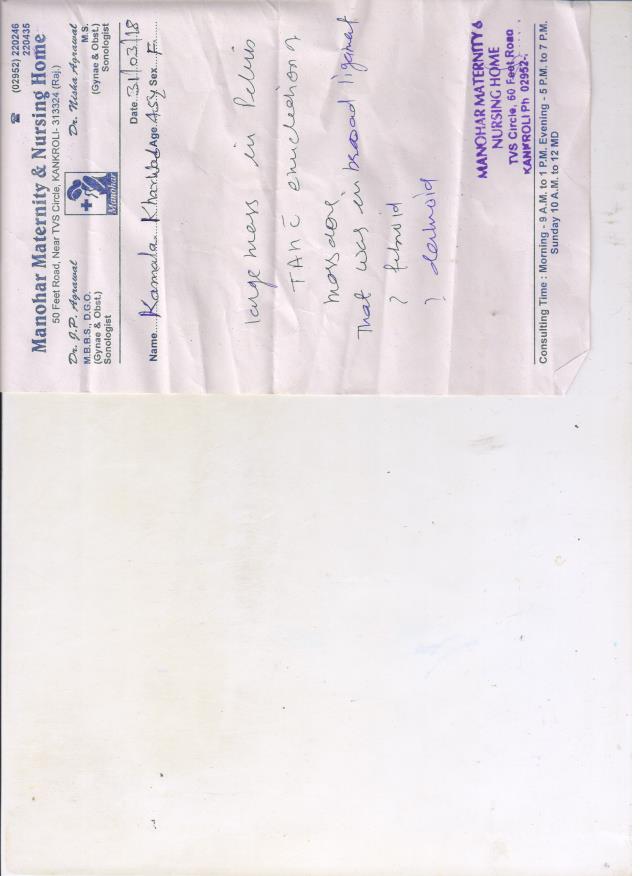 ☎ (02952) 220246
220435
Manohar Maternity & Nursing Home
50 Feet Road, Near TVS Circle, KANKROLI- 313324 (Raj.)
Dr. J.P. Agrawal
M.B.B.S., D.G.O.
(Gynae & Obst.)
Sonologist
Manohar
Dr. Nisha Agrawal
M.S.
(Gynae & Obst.)
Sonologist
Date. 31/03/18
Name....Kamala.. Kharwad Age. 45y Sex. F....
large mass in Pelvis
TAH c enucleation of
mass done
That was in broad ligament
? fibroid
? dermoid
MANOHAR MATERNITY &
NURSING HOME
TVS Circle, 60 Feet Road
KANKROLI Ph 02952-
Consulting Time : Morning - 9 A.M. to 1 P.M. Evening - 5 P.M. to 7 P.M.
Sunday 10 A.M. to 12 MD